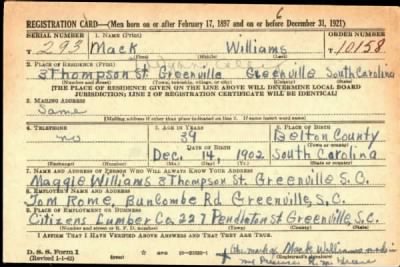 6
REGISTRATION CARD—(Men born on or after February 17, 1897 and on or before December 31, 1921)
SERIAL NUMBER 1. NAME (Print) ORDER NUMBER
T 293 Mack Williams T10158
(First) (Middle) (Last)
2. PLACE OF RESIDENCE (Print)
8 Thompson St. Greenville Greenville South Carolina
(Number and street) (Town, township, village, or city) (County) (State)
[THE PLACE OF RESIDENCE GIVEN ON THE LINE ABOVE WILL DETERMINE LOCAL BOARD
JURISDICTION; LINE 2 OF REGISTRATION CERTIFICATE WILL BE IDENTICAL]
3. MAILING ADDRESS
Same
[Mailing address if other than place indicated on line 2. If same insert word same]
4. TELEPHONE 5. AGE IN YEARS 6. PLACE OF BIRTH
no 39 Belton County
DATE OF BIRTH (Town or county)
Dec. 14, 1902 South Carolina
(Exchange) (Number) (Mo.) (Day) (Yr.) (State or country)
7. NAME AND ADDRESS OF PERSON WHO WILL ALWAYS KNOW YOUR ADDRESS
Maggie Williams 8 Thompson St. Greenville S.C.
8. EMPLOYER'S NAME AND ADDRESS
Tom Rome, Buncombe Rd. Greenville, S.C.
9. PLACE OF EMPLOYMENT OR BUSINESS
Citizens Lumber Co. 227 Pendleton St Greenville, S.C.
(Number and street or R. F. D. number) (Town) (County) (State)
I AFFIRM THAT I HAVE VERIFIED ABOVE ANSWERS AND THAT THEY ARE TRUE.
D. S. S. FORM 1
(Revised 1-1-42) (over)
the mark of Mack Williams made in
my Presence
(Registrant's signature)